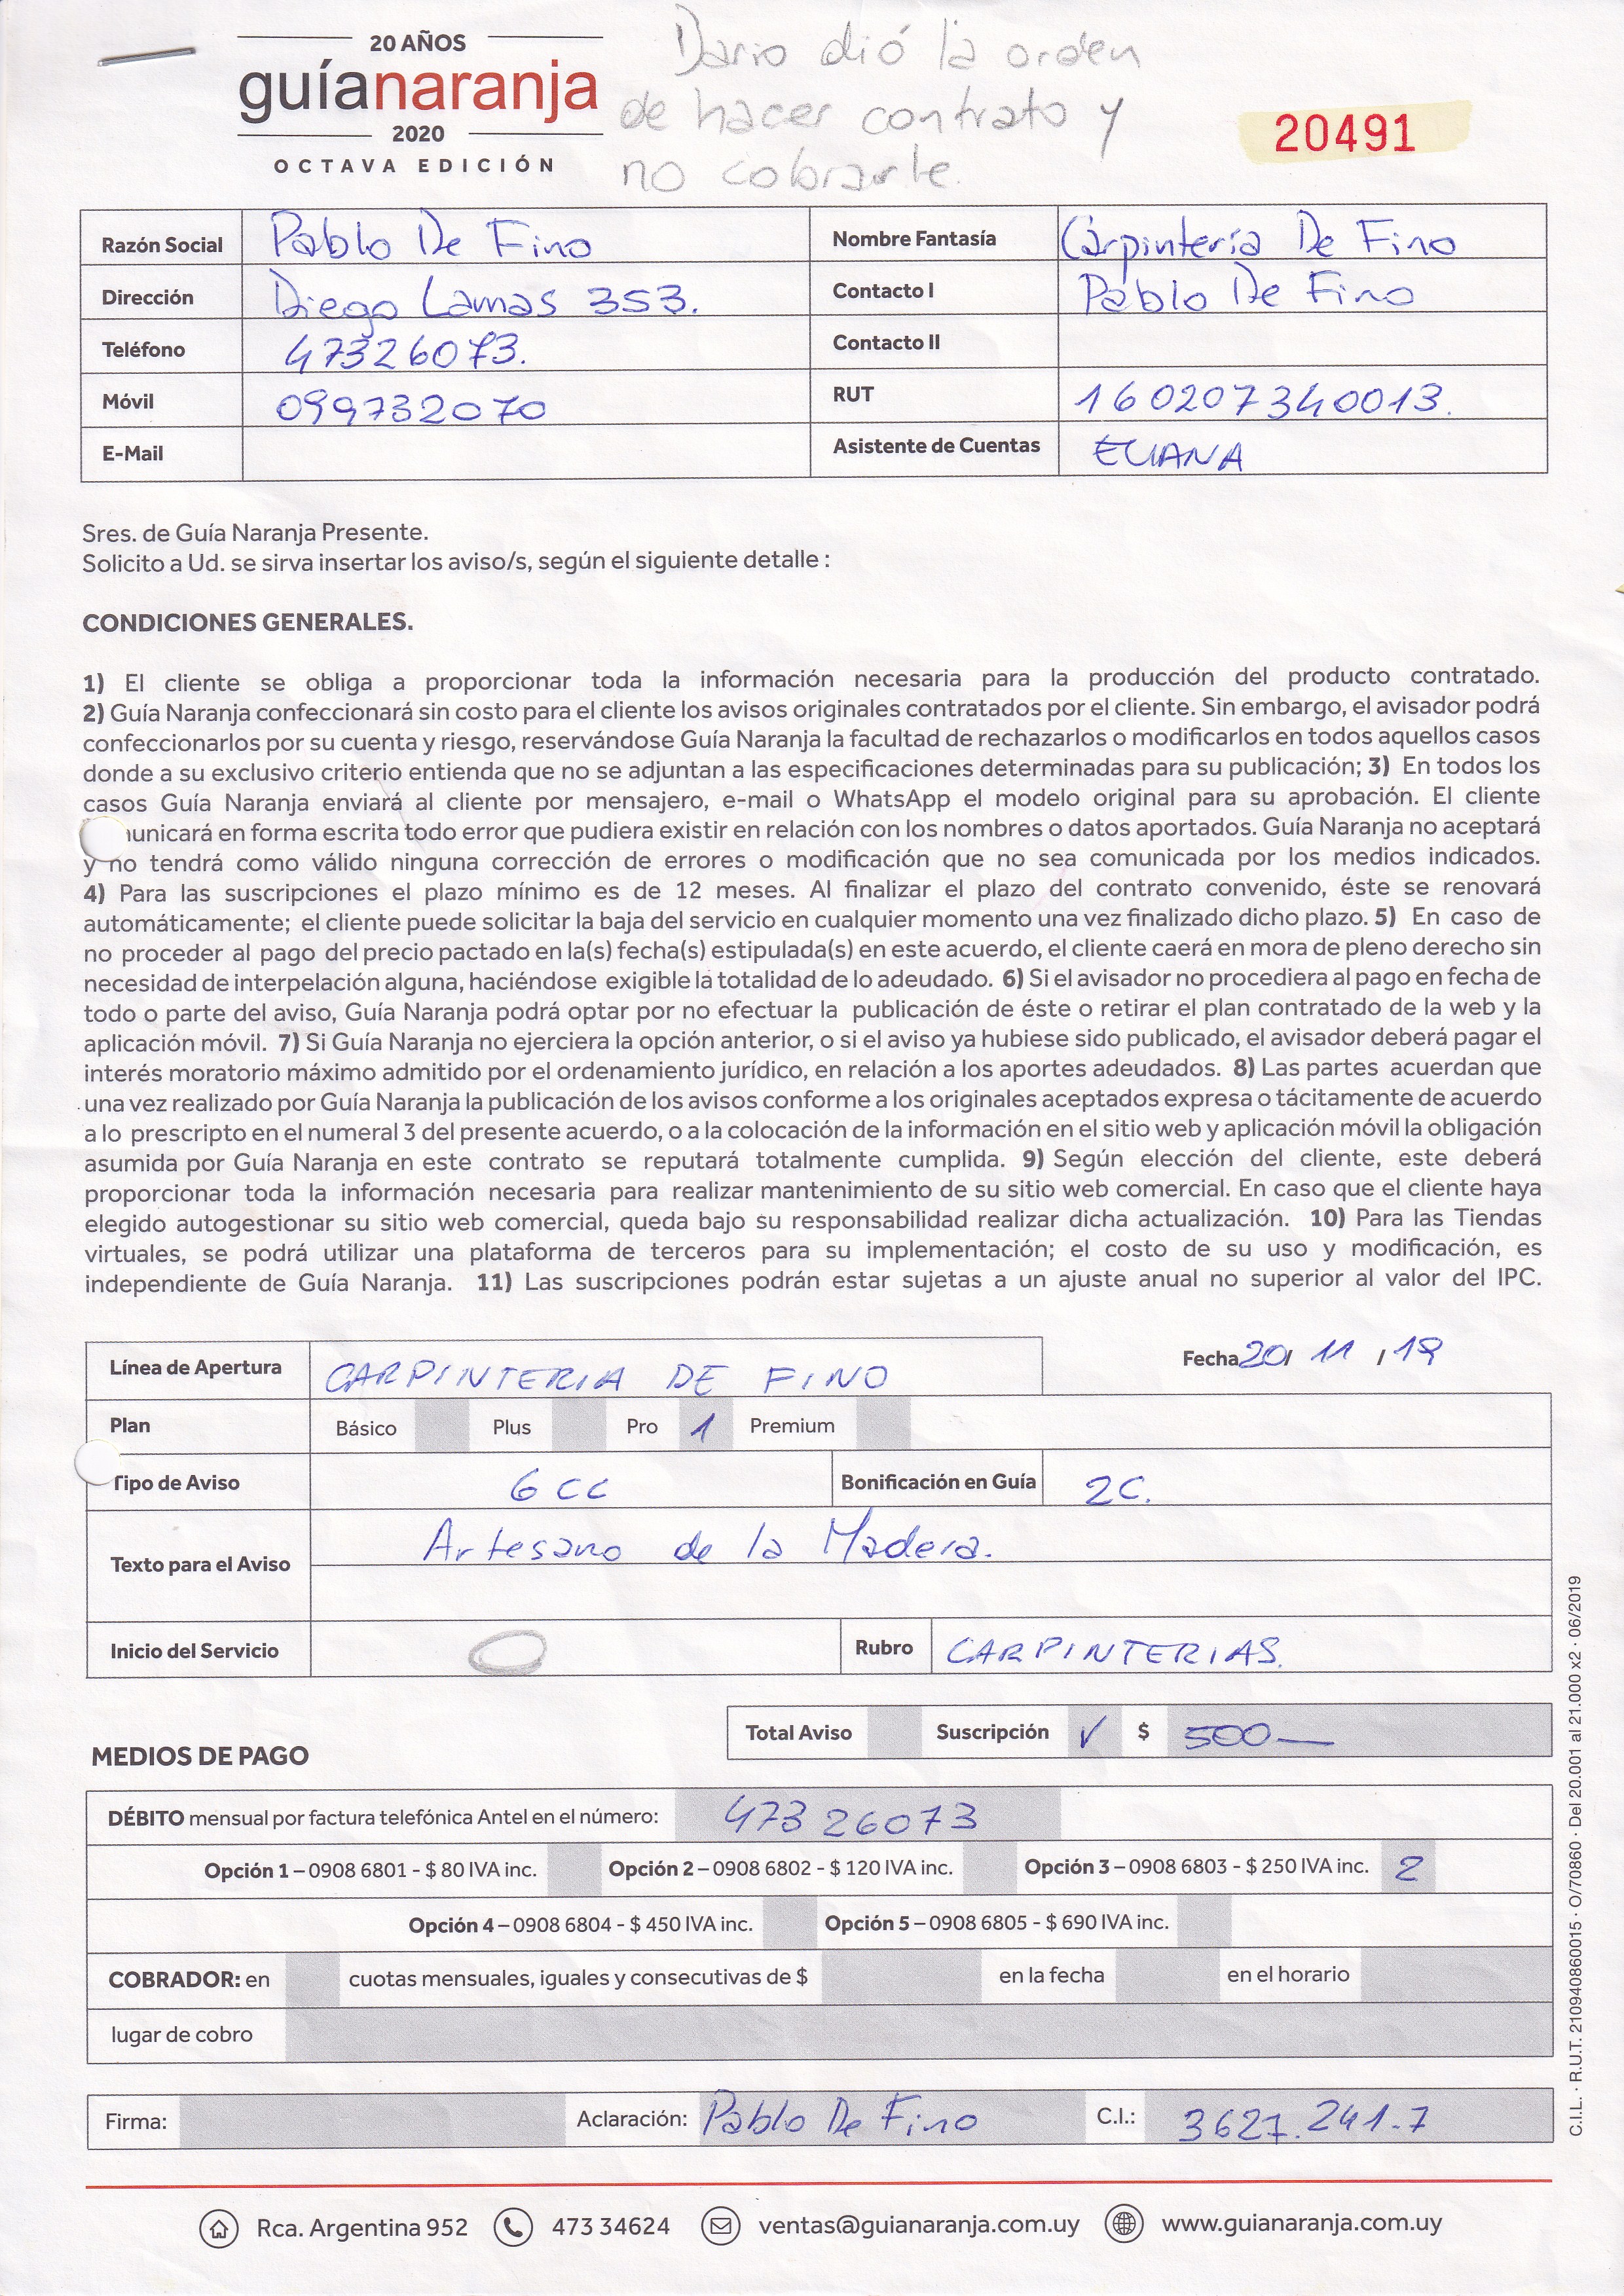 20 AÑOS
guíanaranja
2020
OCTAVA EDICIÓN
Dario dió la orden
de hacer contrato y
no cobrarle.
20491
Razón Social Pablo De Fino Nombre Fantasía Carpintería De Fino
Dirección Diego Lamas 353. Contacto I Pablo De Fino
Teléfono 47326073. Contacto II
Móvil 099732070 RUT 160207340013.
E-Mail Asistente de Cuentas ELIANA
Sres. de Guía Naranja Presente.
Solicito a Ud. se sirva insertar los aviso/s, según el siguiente detalle :
CONDICIONES GENERALES.
1) El cliente se obliga a proporcionar toda la información necesaria para la producción del producto contratado.
2) Guía Naranja confeccionará sin costo para el cliente los avisos originales contratados por el cliente. Sin embargo, el avisador podrá
confeccionarlos por su cuenta y riesgo, reservándose Guía Naranja la facultad de rechazarlos o modificarlos en todos aquellos casos
donde a su exclusivo criterio entienda que no se adjuntan a las especificaciones determinadas para su publicación; 3) En todos los
casos Guía Naranja enviará al cliente por mensajero, e-mail o WhatsApp el modelo original para su aprobación. El cliente
unicará en forma escrita todo error que pudiera existir en relación con los nombres o datos aportados. Guía Naranja no aceptará
y no tendrá como válido ninguna corrección de errores o modificación que no sea comunicada por los medios indicados.
4) Para las suscripciones el plazo mínimo es de 12 meses. Al finalizar el plazo del contrato convenido, éste se renovará
automáticamente; el cliente puede solicitar la baja del servicio en cualquier momento una vez finalizado dicho plazo. 5) En caso de
no proceder al pago del precio pactado en la(s) fecha(s) estipulada(s) en este acuerdo, el cliente caerá en mora de pleno derecho sin
necesidad de interpelación alguna, haciéndose exigible la totalidad de lo adeudado. 6) Si el avisador no procediera al pago en fecha de
todo o parte del aviso, Guía Naranja podrá optar por no efectuar la publicación de éste o retirar el plan contratado de la web y la
aplicación móvil. 7) Si Guía Naranja no ejerciera la opción anterior, o si el aviso ya hubiese sido publicado, el avisador deberá pagar el
interés moratorio máximo admitido por el ordenamiento jurídico, en relación a los aportes adeudados. 8) Las partes acuerdan que
una vez realizado por Guía Naranja la publicación de los avisos conforme a los originales aceptados expresa o tácitamente de acuerdo
a lo prescripto en el numeral 3 del presente acuerdo, o a la colocación de la información en el sitio web y aplicación móvil la obligación
asumida por Guía Naranja en este contrato se reputará totalmente cumplida. 9) Según elección del cliente, este deberá
proporcionar toda la información necesaria para realizar mantenimiento de su sitio web comercial. En caso que el cliente haya
elegido autogestionar su sitio web comercial, queda bajo su responsabilidad realizar dicha actualización. 10) Para las Tiendas
virtuales, se podrá utilizar una plataforma de terceros para su implementación; el costo de su uso y modificación, es
independiente de Guía Naranja. 11) Las suscripciones podrán estar sujetas a un ajuste anual no superior al valor del IPC.
Línea de Apertura CARPINTERIA DE FINO Fecha 20/ 11 / 19
Plan Básico Plus Pro 1 Premium
Tipo de Aviso 6 CC Bonificación en Guía 2C.
Texto para el Aviso Artesano de la Madera.
Inicio del Servicio Rubro CARPINTERIAS.
Total Aviso Suscripción ✓ $ 500—
MEDIOS DE PAGO
DÉBITO mensual por factura telefónica Antel en el número: 473 26073
Opción 1 – 0908 6801 - $ 80 IVA inc. Opción 2 – 0908 6802 - $ 120 IVA inc. Opción 3 – 0908 6803 - $ 250 IVA inc. 2
Opción 4 – 0908 6804 - $ 450 IVA inc. Opción 5 – 0908 6805 - $ 690 IVA inc.
COBRADOR: en cuotas mensuales, iguales y consecutivas de $ en la fecha en el horario
lugar de cobro
Firma: Aclaración: Pablo De Fino C.I.: 3627.241-7
Rca. Argentina 952 473 34624 ventas@guianaranja.com.uy www.guianaranja.com.uy
C.I.L. · R.U.T. 210940860015 · O/70860 · Del 20.001 al 21.000 x2 · 06/2019